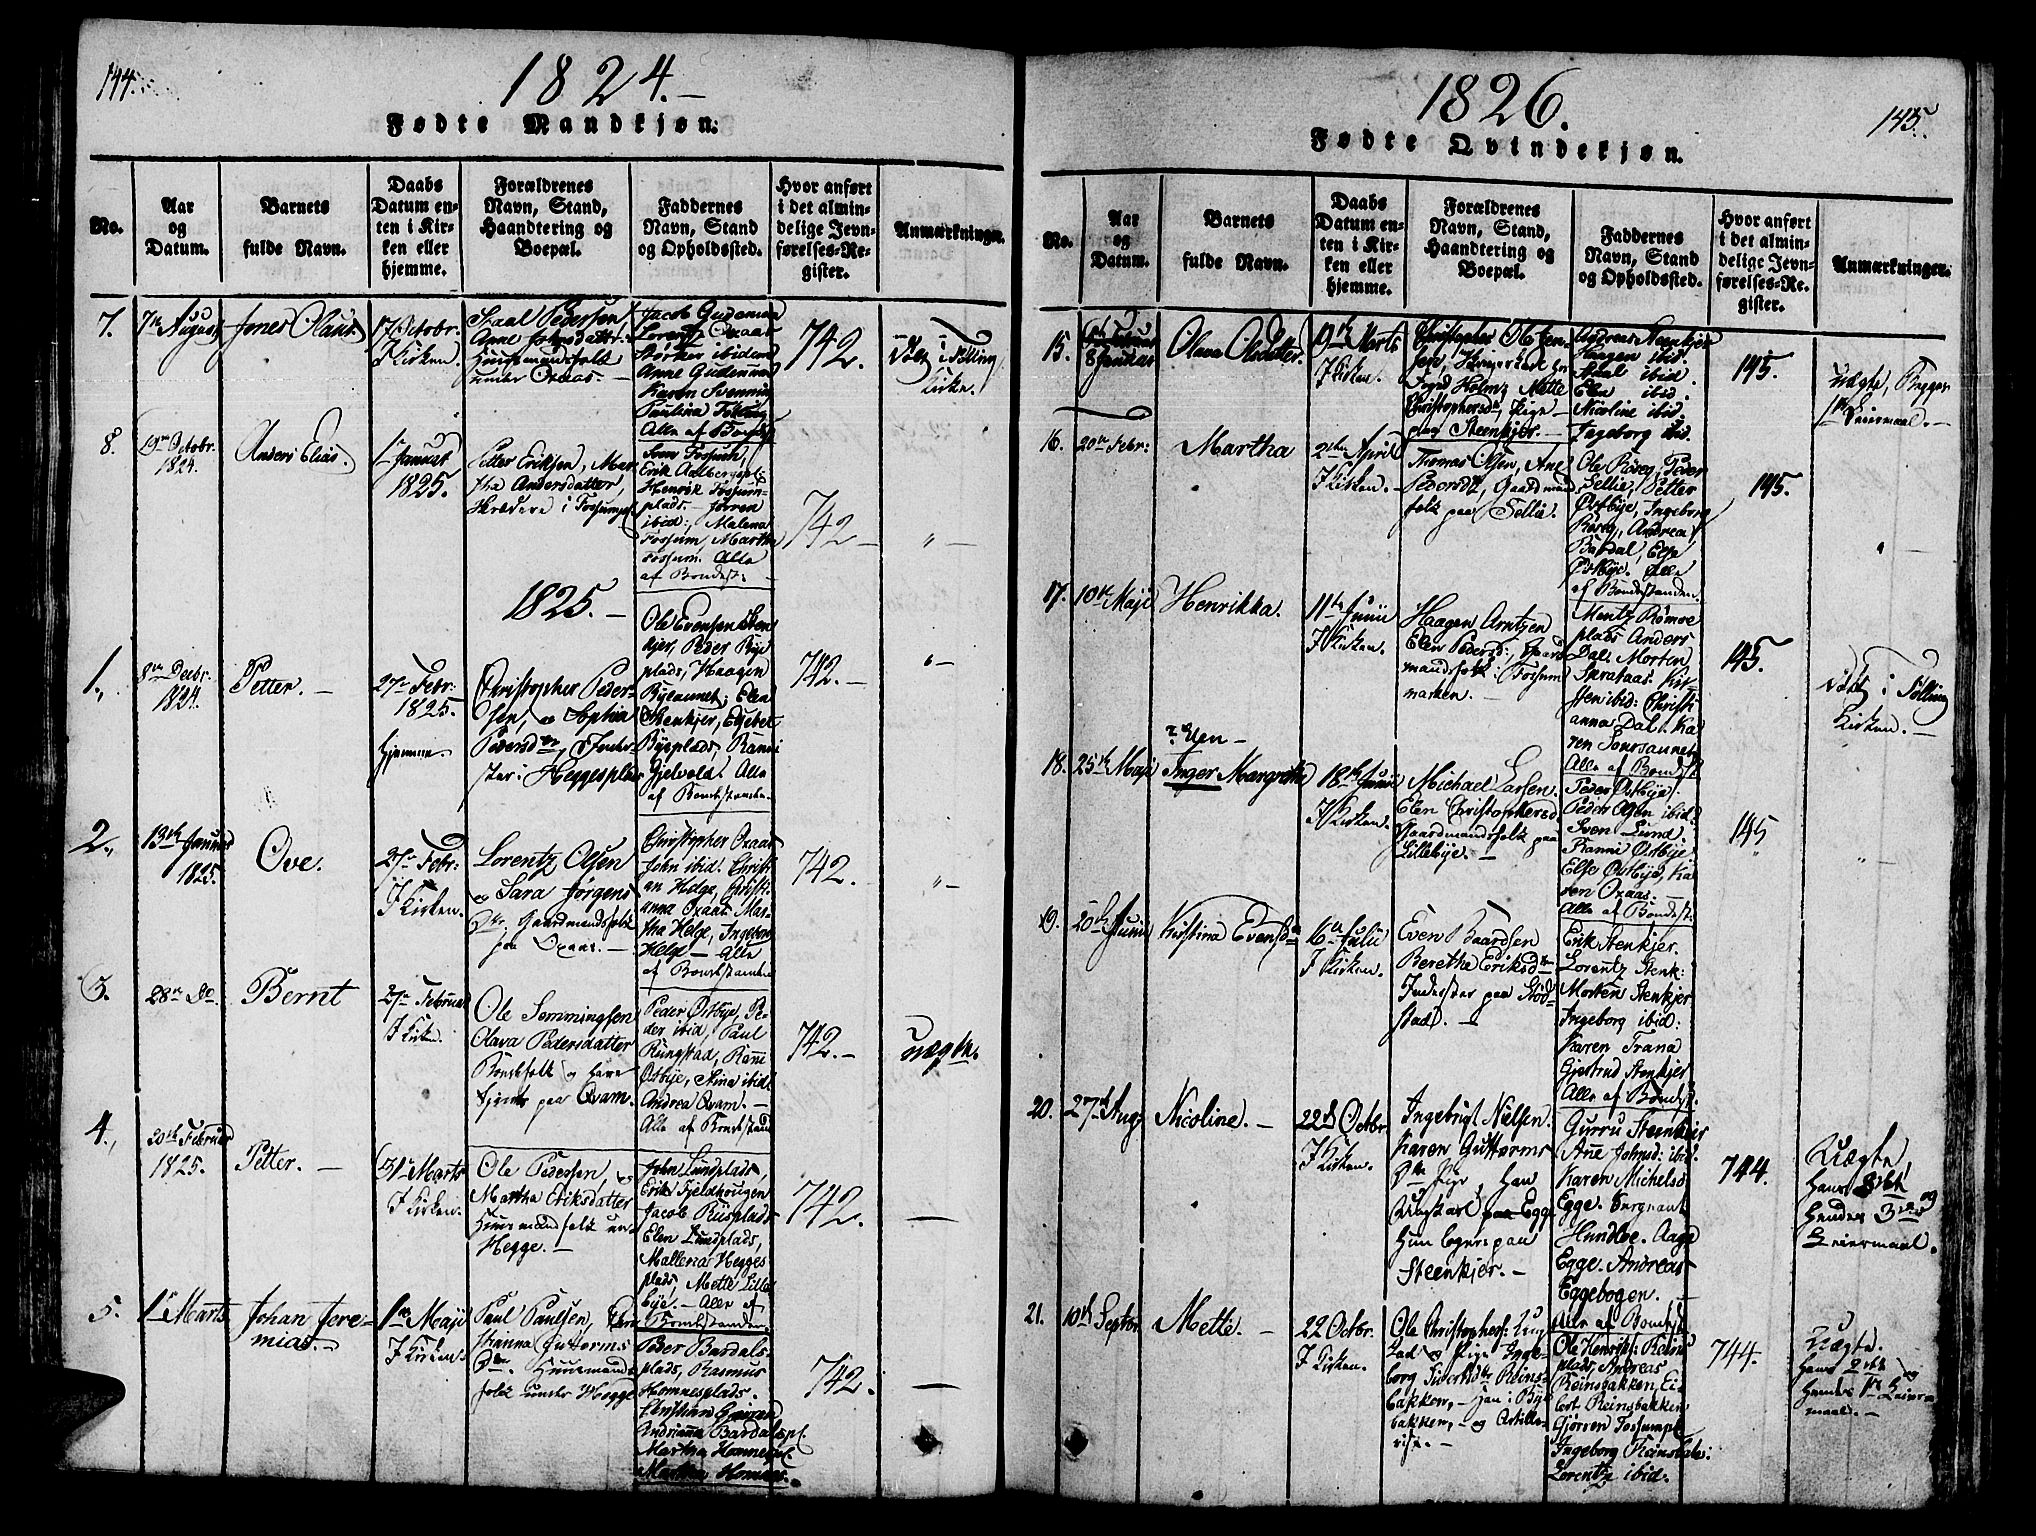 144.
1824.
Fødte Mandkjøn:
No.
Aar
og
Datum.
Barnets
fulde Navn.
Daabs
Datum en-
ten i Kir-
ken eller
hjemme.
Forældrenes
Navn, Stand,
Haandtering og
Boepæl.
Faddernes
Navn, Stand
og Opholdssted.
Hvor anført
i det almin-
delige Jevn-
førelses-Re-
gister.
Anmærkninger.
7.
7de August
Jones Olaus
17 Octobr.
I Kirken.
Pedersen
Anne Johnsdattr:
Huusmandsfolk
under Oxaas.
Jacob Gudemun
Lorentz Oxaas
Storker ibidem
Anne Gudemun
Karen Svenning
Paulina Følling
Alle af Bondest
742.
Døbt i Følling
Kirke.
8.
19de Octobr.
1824.
Anders Elias.
1ste Januar
1825.
Petter Eriksen, Mar-
tha Andersdatter,
Skrædere i Fossumpl.
Fossum,
Erik Aalbergspl:
Henrik Fossum-
plads. Jørren
ibid:, Malena
Fossum, Martha
Fossum. Alle
af Bondest:
742
" —
1825. —
1.,
8de Decbr.
1824.
Petter. —
27de Febr:
1825.
hjemme.
Christopher Peder-
sen, og Sophia
Pedersdtr, Inder-
ster i Heggesplads
Ole Evensen Sten-
kjer, Peder Bye
plads, Haagen
Byeaunet; Elen
Stenkjer, Elsebet
Byeplads, Ranni
Gjelvold. Alle
af Bondestanden.
742.—
" —
2.,
13de Januar
1825.
Ove.
27de Febr:
I Kirken.
Lorentz Olsen
og Sara Jørgens
Dtr. Gaardmandsfolk
paa Oxaas. —
Christopher Oxaas
John ibid. Christi-
an Helge, Christi-
anna Oxaas Mar-
tha Helge, Ingeborg
Helge — Alle
af Bondestanden
742.
" —
3.
28de Do
Bernt
27de Februar
I Kirken.
Ole Sommingsen
Olava Pedersdatter
Bondefolk og have
tjent paa Qvam.
Peder Østbye, Pe-
der ibid, Paul
Rungstad, Ranni
Østbye, Stina ibid:
Andrea Qvam. —
Alle af Bondestand
742.—
uægte.
4.,
20de Februar
1825.
Petter. —
31te Marts
I Kirken.
Ole Pedersen, og
Martha Eriksdatter
Huusmandsfolk un-
Hegge. —
John Lundplads,
Erik Fjeldhougen
Jacob Riisplads
Elen Lundplads,
Mallena Hegges
plads, Mette Lille
bye. — Alle af
Bondestanden.
742.
—
5.
1ste Marts
Johan Jere-
mias.
1ste Maji
I Kirken.
Paul Paulsen, Chri-
stianna Guttorms
Dtr. Huusmands
folk under Hegge
Peder Bardals-
plads, Rasmus
Homnesplads.
Christian
Andrianna Bardalspl.
Martha Homnespl.
Martha Homnes.
742.
—
1826.
Fødte Qvindekjøn.
145.
No.
Aar
og
Datum.
Barnets
fulde Navn.
Daabs
Datum en-
ten i Kir-
ken eller
hjemme.
Forældrenes
Navn, Stand,
Haandtering og
Boepæl.
Faddernes
Navn, Stand
og Opholdssted.
Hvor anført
i det almin-
delige Jevn-
førelses-Re-
gister.
Anmærkninger.
15.
8 Januar
Olava Olsdatter.
19de Marts
I Kirken.
Christopher Olsen
Mette
Christophersdtr, Pige
paa Steenkjer. —
Andreas Steenkjer
Haagen ibid.
Paal ibid.
Elen ibid.
Nicoline ibid.
Ingeborg ibid.
145.
uægte, Begges
1ste Leiermaal. —
16.
20de Febr:
Martha
2den April
I Kirken.
Thomas Olsen, Ane
Gaardmands
folk paa Sellie.
Ole Røseg, Peder
Sellie, Petter
Østbye, Ingeborg
Røseg, Andrea
Bardal, Else
Østbye. Alle
af Bondestanden.
145.
" —
17.
10de Maji
Henrikka.
11te Junii
I Kirken.
Haagen Arntzen
Elen Pedersd:, Gaard
mandsfolk i Fossum
marken.
Mentz Rømoe
plads Anders
Dal. Morten
Skrataas. Kir-
sten ibid: Christi
anna Dal. Ka
ren Sørsaunet
Alle af Bondest.
145.
Døbt i Følling
Kirken. —
18.
25de Maji
Elen —
Inger Margretha
18de Junii
I Kirken.
Michael Larsen.
Elen Christophersd
Gaardmandsfolk paa
Lillebye. —
Peder Østbye:
Peder Olsen ibid:
Sven Lund.
Ranni Østbye.
Else Østbye, Ka-
ren Oxaas.
Alle af Bondest:
145
" —
19.
20de Junii
Kirstina Evensdtr
16de Julii
I Kirken.
Even Baardsen
Beretha Eriksdtr
Inderster paa Stöd-
stad. —
Erik Stenkjer.
Lorentz Stenk:
Morten Stenkjer
Ingeborg ibid:
Karen Trana
Gjertrud Stenkjer
Alle af Bondest.
20.
27de Aug:
Nicoline. —
22de Octbr
I Kirken.
Ingebrigt Nilsen.
Karen Guttorms
Dtr Pige, han
Ungkarl paa Egge
Hun logerer paa
Steenkjer. —
Gurru Steenkjer
Ane Johnsd: ibid.
Karen Michelsd
Egge.
Hundbe. Aage
Egge. Andreas
Eggebogen. —
Alle af Bondest
744.
Uægte,
hans 3die og
hendes 3die
Leiermaal.
21.
10de Septbr
Mette. —
22 Octbr.
I Kirken.
Ole Christophers: Ung
kal og Pige Inge-
borg Sivertsdtr Reins-
bakken, — han i Bye
bakken, — og Artille-
rist. —
Ole Henrichs: Reins
plads, Andreas
Reinsbakken, Ei-
lert Reinsbakken
Gjørren Fossumpl.
Ingeborg Reinsbak:
Lorentz ibid.
744.
Uægte.
hans 2det og
hendes 1ste Leier-
maal. —